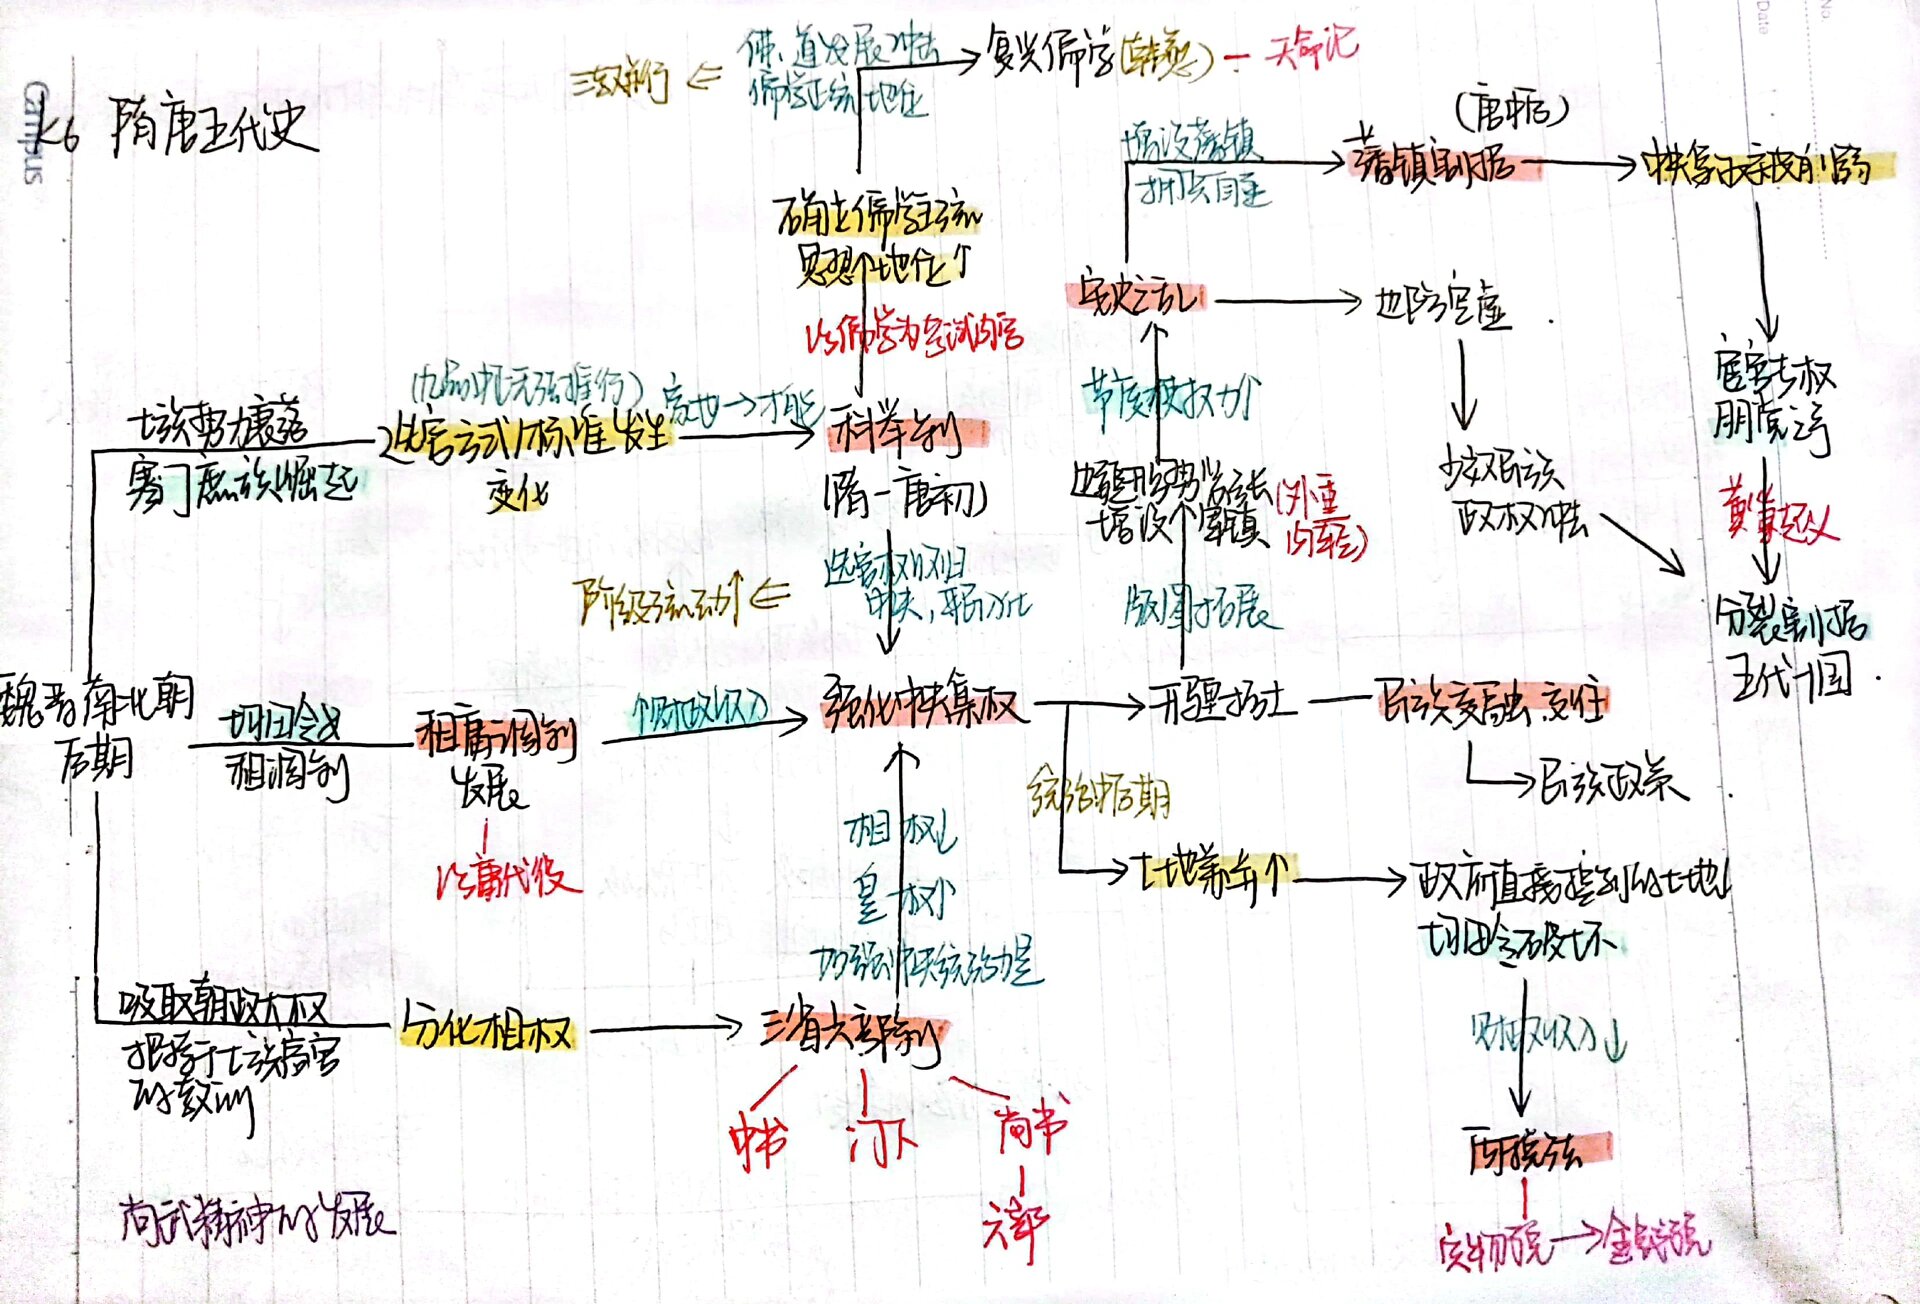 Campus
No.
Date
K6 隋唐五代史
三教并行
佛、道发展冲击
儒学正统地位
复兴儒学(韩愈)
天命论
确立儒学主流
思想地位↑
以儒学为考试内容
士族势力衰落
寒门庶族崛起
(九品中正无法推行)
选官方式/标准发生
变化
家世→才能
科举制
(隋-唐初)
选官权收归
中央,
阶级流动↑
魏晋南北朝
后期
均田令
租调制
租庸调制
发展
以庸代役
↑财政收入
强化中央集权
相权↓
皇权↑
加强中央统治力量
吸取朝政大权
把持于士族高官
的教训
分化相权
三省六部制
中书
门下
尚书
六部
尚武精神的发展
增设藩镇
拥兵自重
(唐中后)
藩镇割据
中央集权被削弱
安史之乱
边防空虚
节度使权力↑
边疆形势紧张
增设军镇
(外重
内轻)
版图拓展
少数民族
政权冲击
宦官专权
朋党之争
黄巢起义
分裂割据
五代十国
开疆拓土
民族交融、交往
民族政策
统治中后期
土地兼并↑
政府直接控制的土地↓
均田令破坏
财政收入↓
两税法
实物税→金钱税